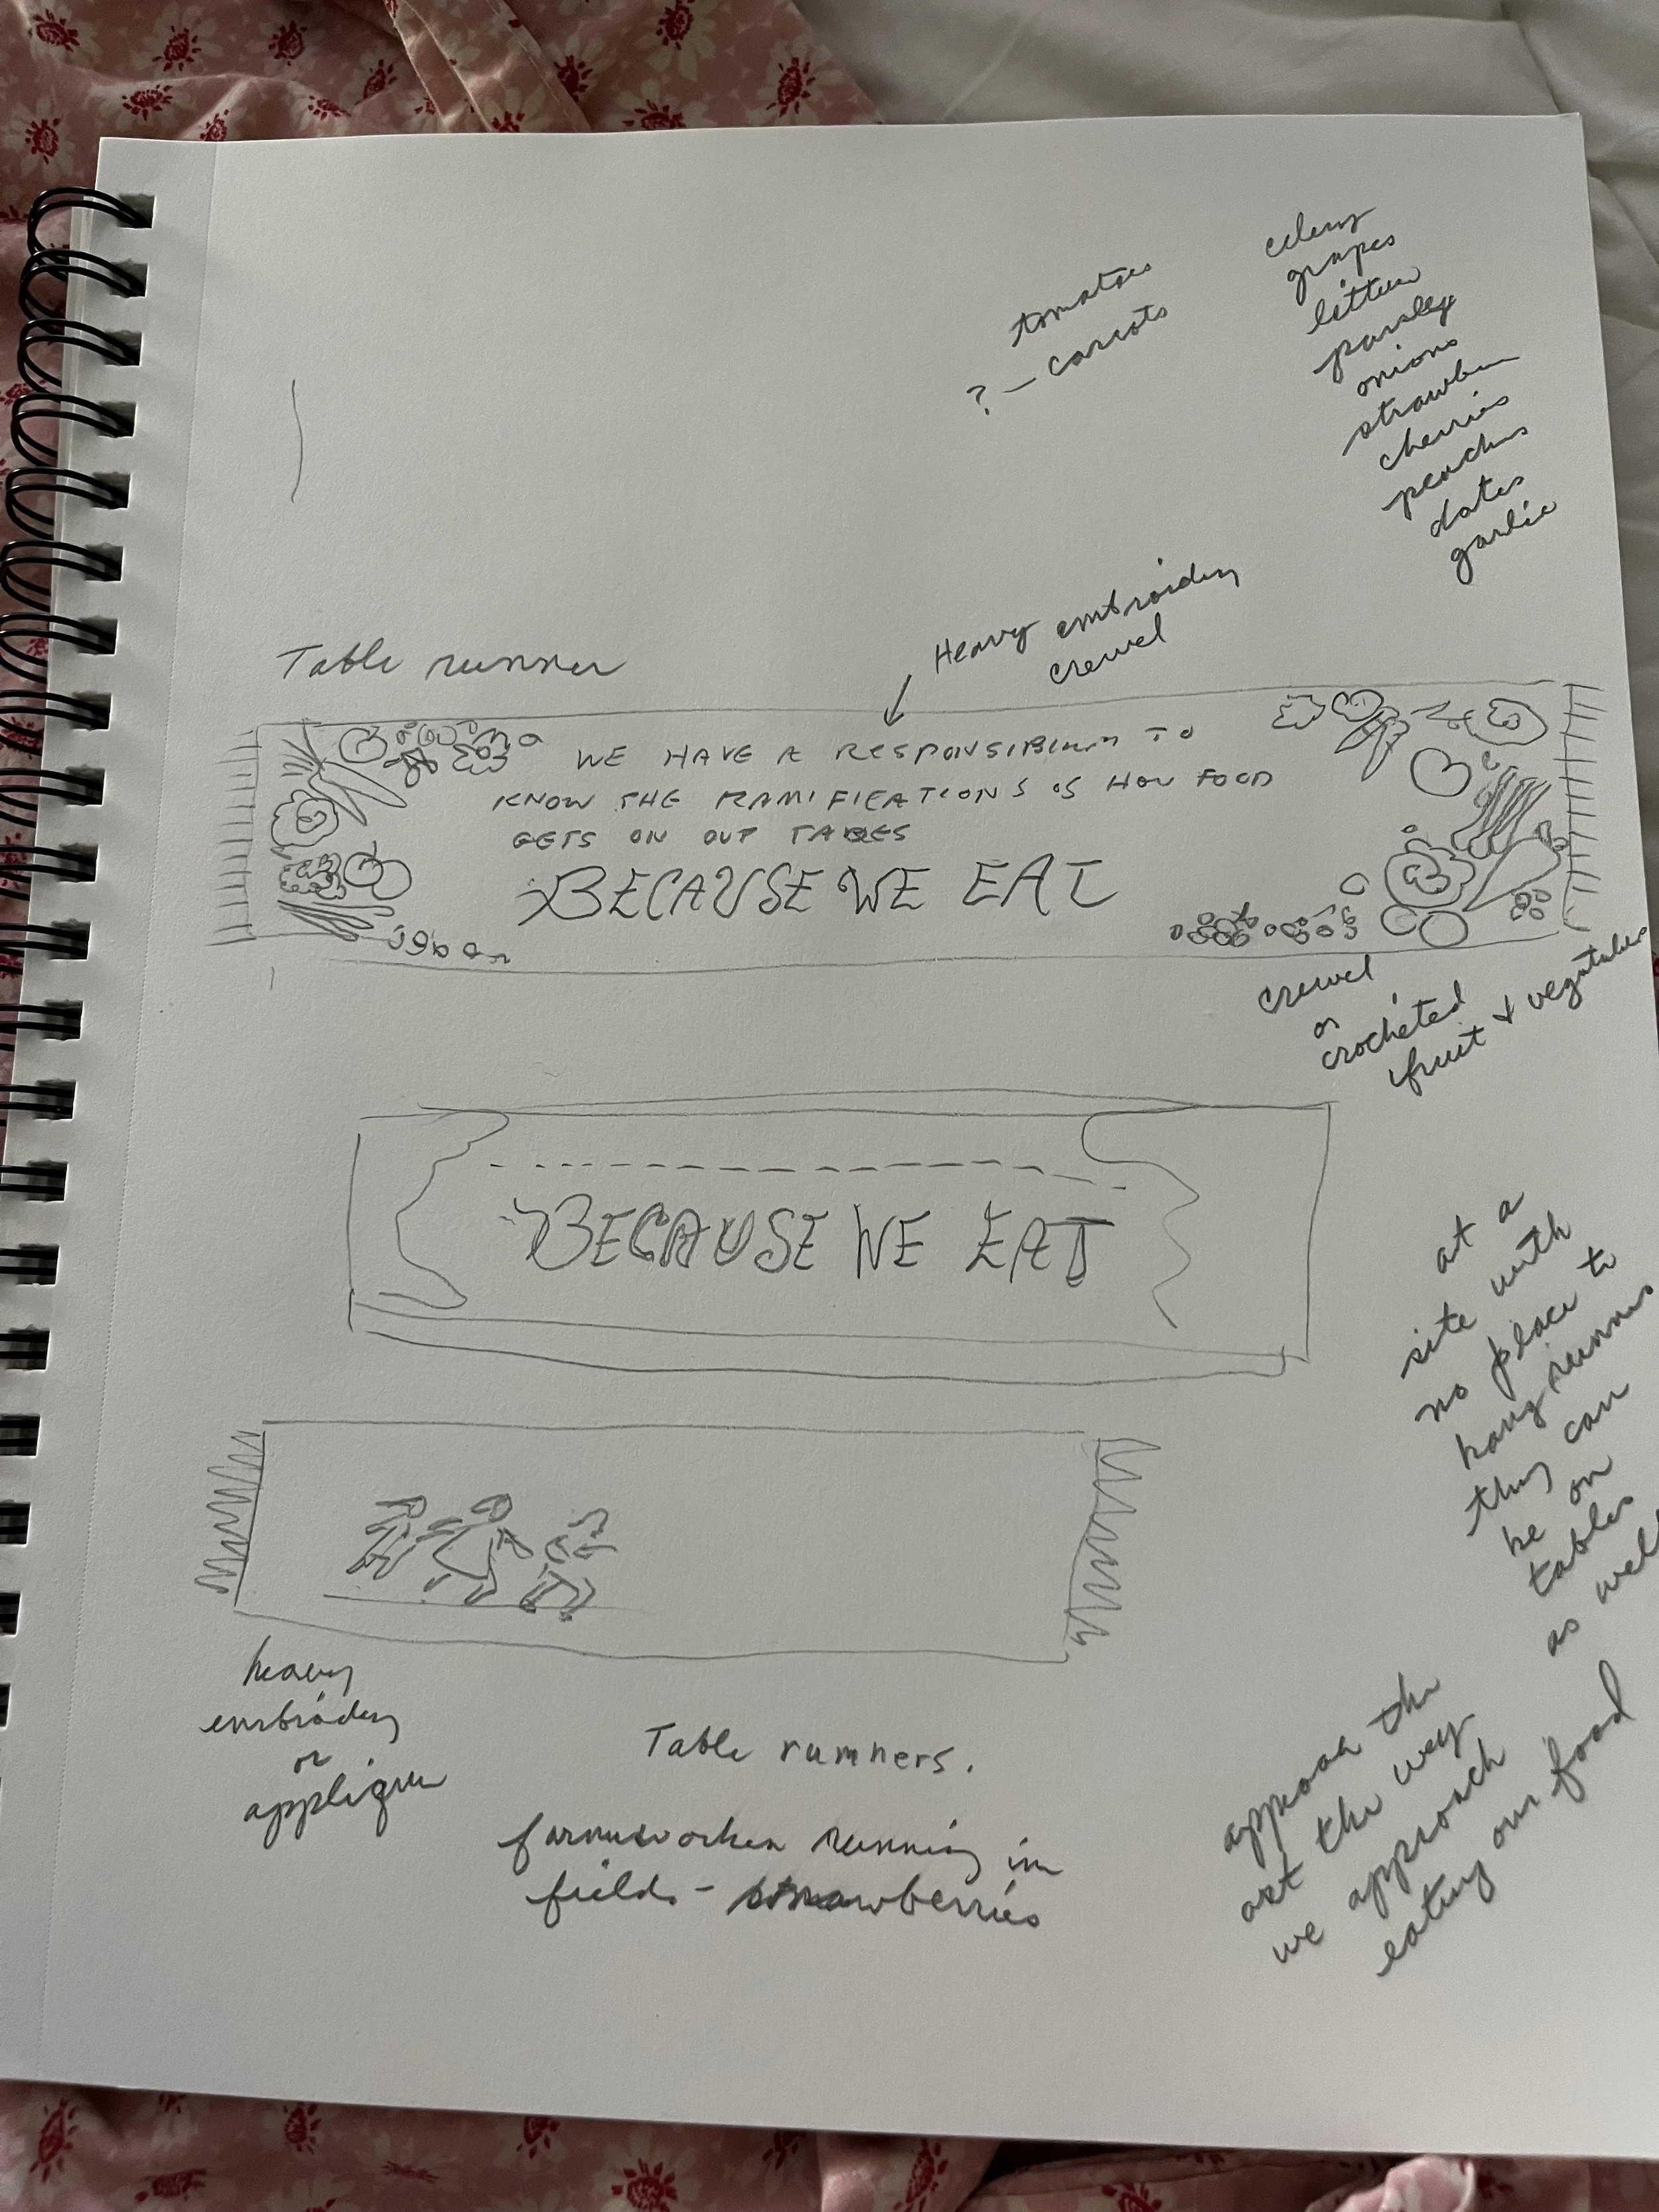 celery
grapes
lettuce
parsley
onions
strawber
cherries
peaches
dates
garlic
tomatoes
? — carrots
Heavy embroidery
crewel
Table runner
WE HAVE A RESPONSIBILITY TO
KNOW THE RAMIFICATIONS OF HOW FOOD
GETS ON OUR TABLES
BECAUSE WE EAT
crewel
or
crocheted
fruit + vegetables
BECAUSE WE EAT
at a
site with
no place to
hang runners
they can
be on
tables
as well
heavy
embroidery
or
applique
Table runners.
farmworker running in
fields - strawberries
approach the
art the way
we approach
eating our food